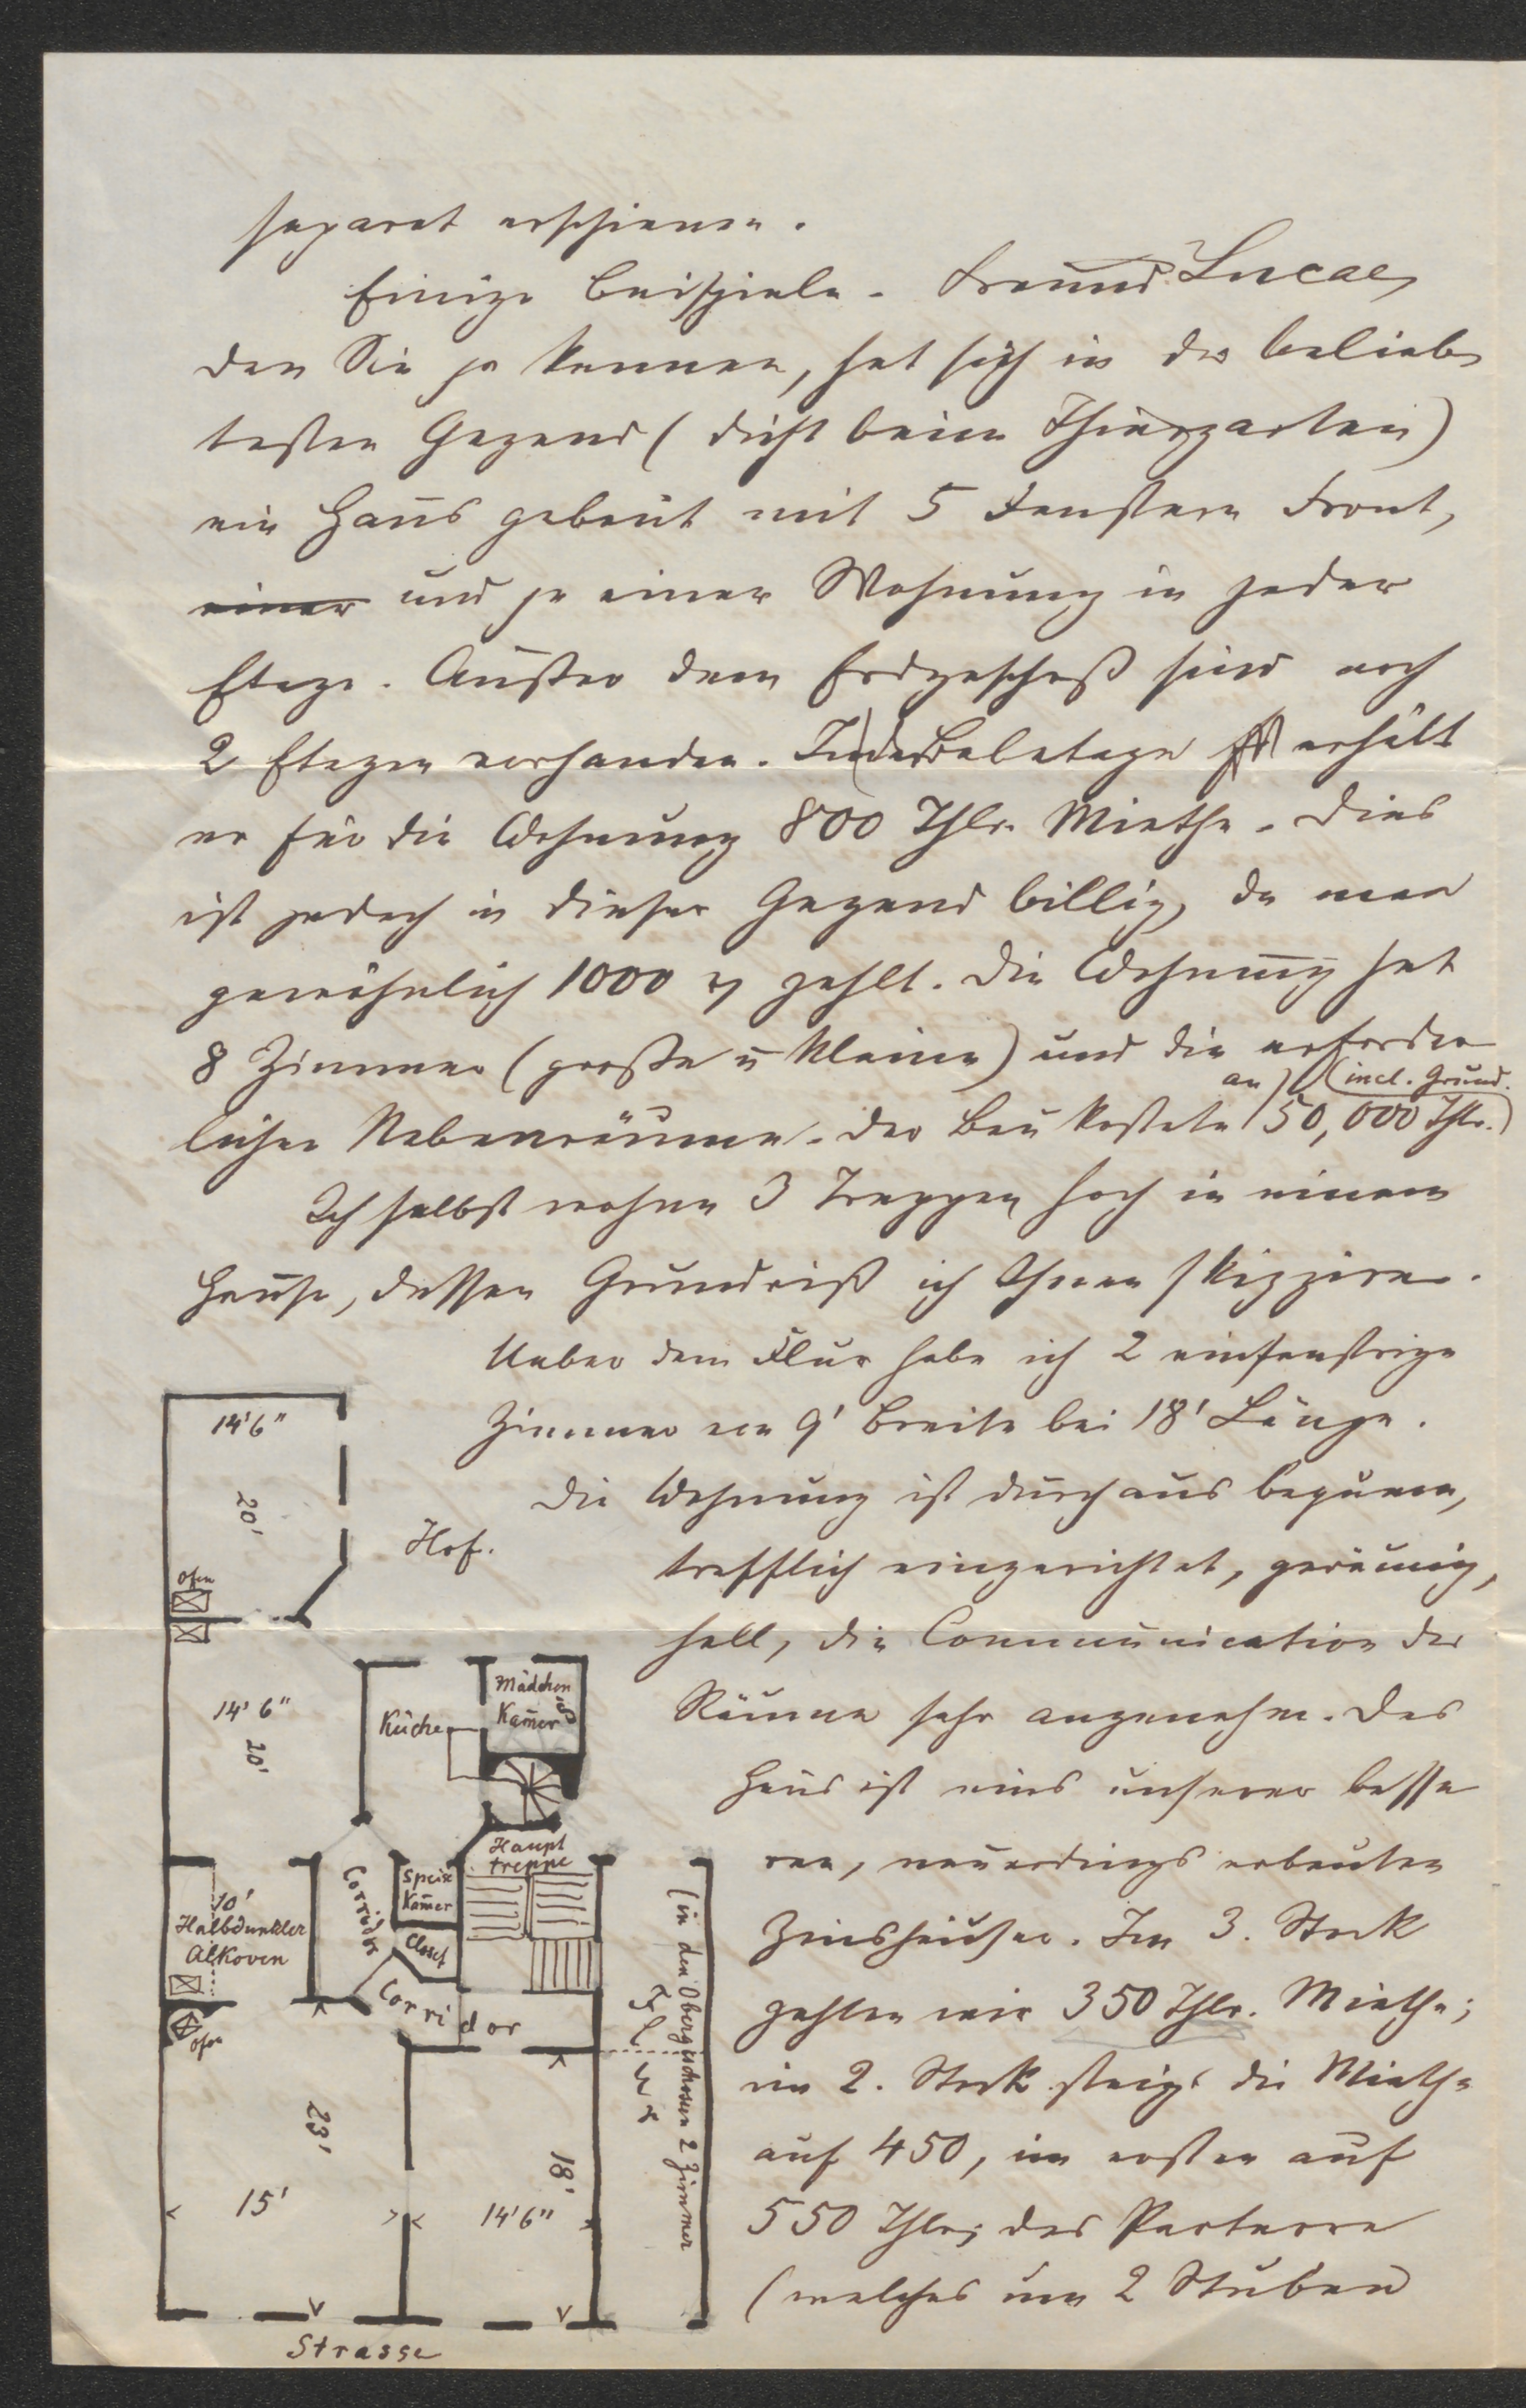 separat erschienen.
Einige Beispiele. Freund Lucae,
den Sie ja kennen, hat sich in der belieb
testen Gegend (dicht beim Thiergarten)
ein Haus gebaut mit 5 Fenstern Front,
einer und je einer Wohnung in jeder
Etage. Außer dem Erdgeschoß sind noch
2 Etagen vorhanden. In der Beletage erhält
er für die Wohnung 800 Thlr. Miethe. Dies
ist jedoch in dieser Gegend billig, da man
gewöhnlich 1000 zahlt. Die Wohnung hat
8 Zimmer (große u kleine) und die erforder
an (incl. Grund.
lichen Nebenräume. Der Bau kostete 50,000 Thlr.)
Ich selbst wohne 3 Treppen hoch in einem
Hause, dessen Grundriß ich Ihnen skizzire.
Ueber dem Flur habe ich 2 einfenstrige
Zimmer von 9' Breite bei 18' Länge.
Die Wohnung ist durchaus bequem,
trefflich eingerichtet, geräumig,
hell, die Communication der
Räume sehr angenehm. Das
Haus ist eins unserer besse
ren, neuerdings erbauten
Zinshäuser. Im 3. Stock
zahlen wir 350 Thlr. Miethe;
im 2. Stock steigt die Miethe
auf 450, im ersten auf
550 Thlr; das Parterre
(welches um 2 Stuben
14'6"
20'
Ofen
Hof.
14'6"
20'
Küche
Mädchen
Kam̅er
Haupt
treppe
Speise
Kam̅er
Corridor
Closet
10'
Halbdunkler
Alkoven
Corridor
Ofen
Flur
(in den Obergeschossen 2 Zimmer
23'
15'
18'
14'6"
Strasse